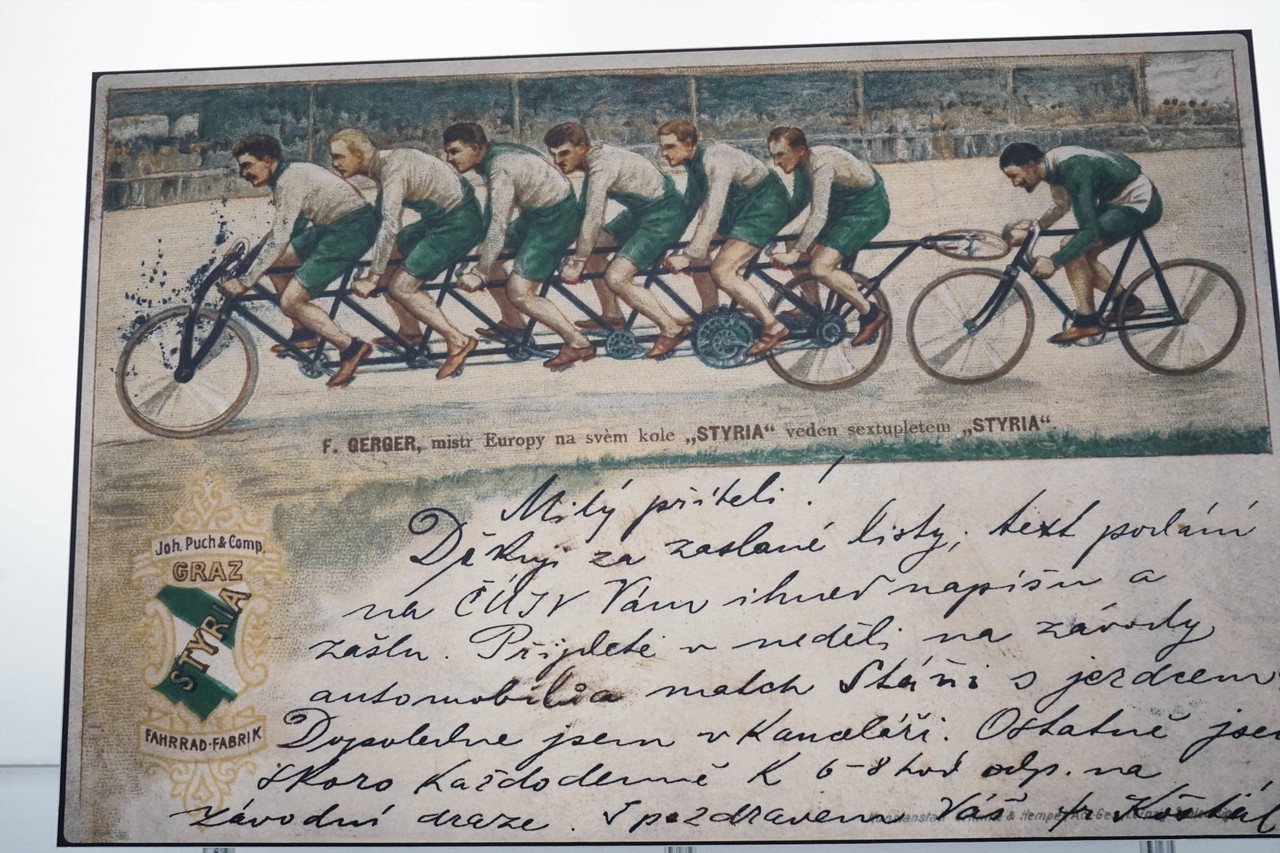 F. GERGER, mistr Europy na svèm kole „STYRIA“ veden sextupletem „STYRIA“.
Milý příteli!
Děkuji za zaslané listy, text podání
na ČÚJV Vám ihned napíšu a
zašlu. Přijdete v neděli na závody
automobilů a match Stáni s jezdcem
Dopoledne jsem v Kanceláři. Ostatně jsem
skoro každodenně K 6-8 hod odp. na
závodní draze. S pozdravem Váš
Joh. Puch & Comp.
GRAZ
STYRIA
FAHRRAD-FABRIK